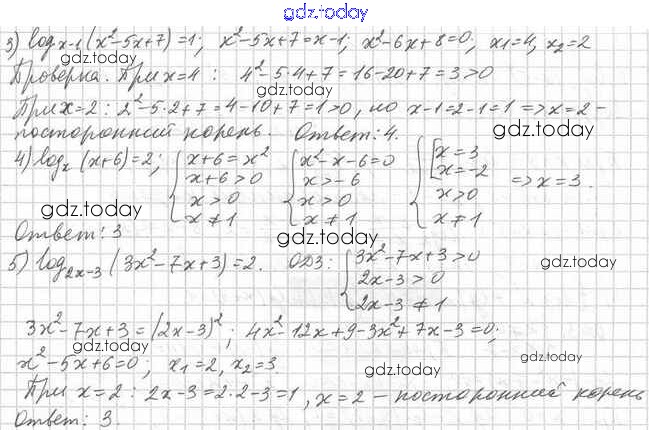 gdz.today
3) log_{x-1}(x²-5x+7)=1; x²-5x+7=x-1; x²-6x+8=0; x₁=4, x₂=2
gdz.today
Проверка. При x=4 : 4²-5·4+7=16-20+7=3>0
gdz.today
При x=2 : 2²-5·2+7=4-10+7=1>0, но x-1=2-1=1 => x=2 -
посторонний корень. Ответ: 4.
gdz.today
4) log_x (x+6)=2; { x+6=x² { x²-x-6=0 { [ x=3
x+6>0 x>-6 x=-2
x>0 x>0 x>0 => x=3.
x≠1 x≠1 x≠1
gdz.today
Ответ: 3
gdz.today
5) log_{2x-3}(3x²-7x+3)=2. ОДЗ: { 3x²-7x+3>0
2x-3>0
2x-3≠1
gdz.today
3x²-7x+3=(2x-3)²; 4x²-12x+9-3x²+7x-3=0;
gdz.today
x²-5x+6=0; x₁=2, x₂=3
gdz.today
gdz.today
При x=2 : 2x-3=2·2-3=1, x=2 - посторонний корень
Ответ: 3.
gdz.today